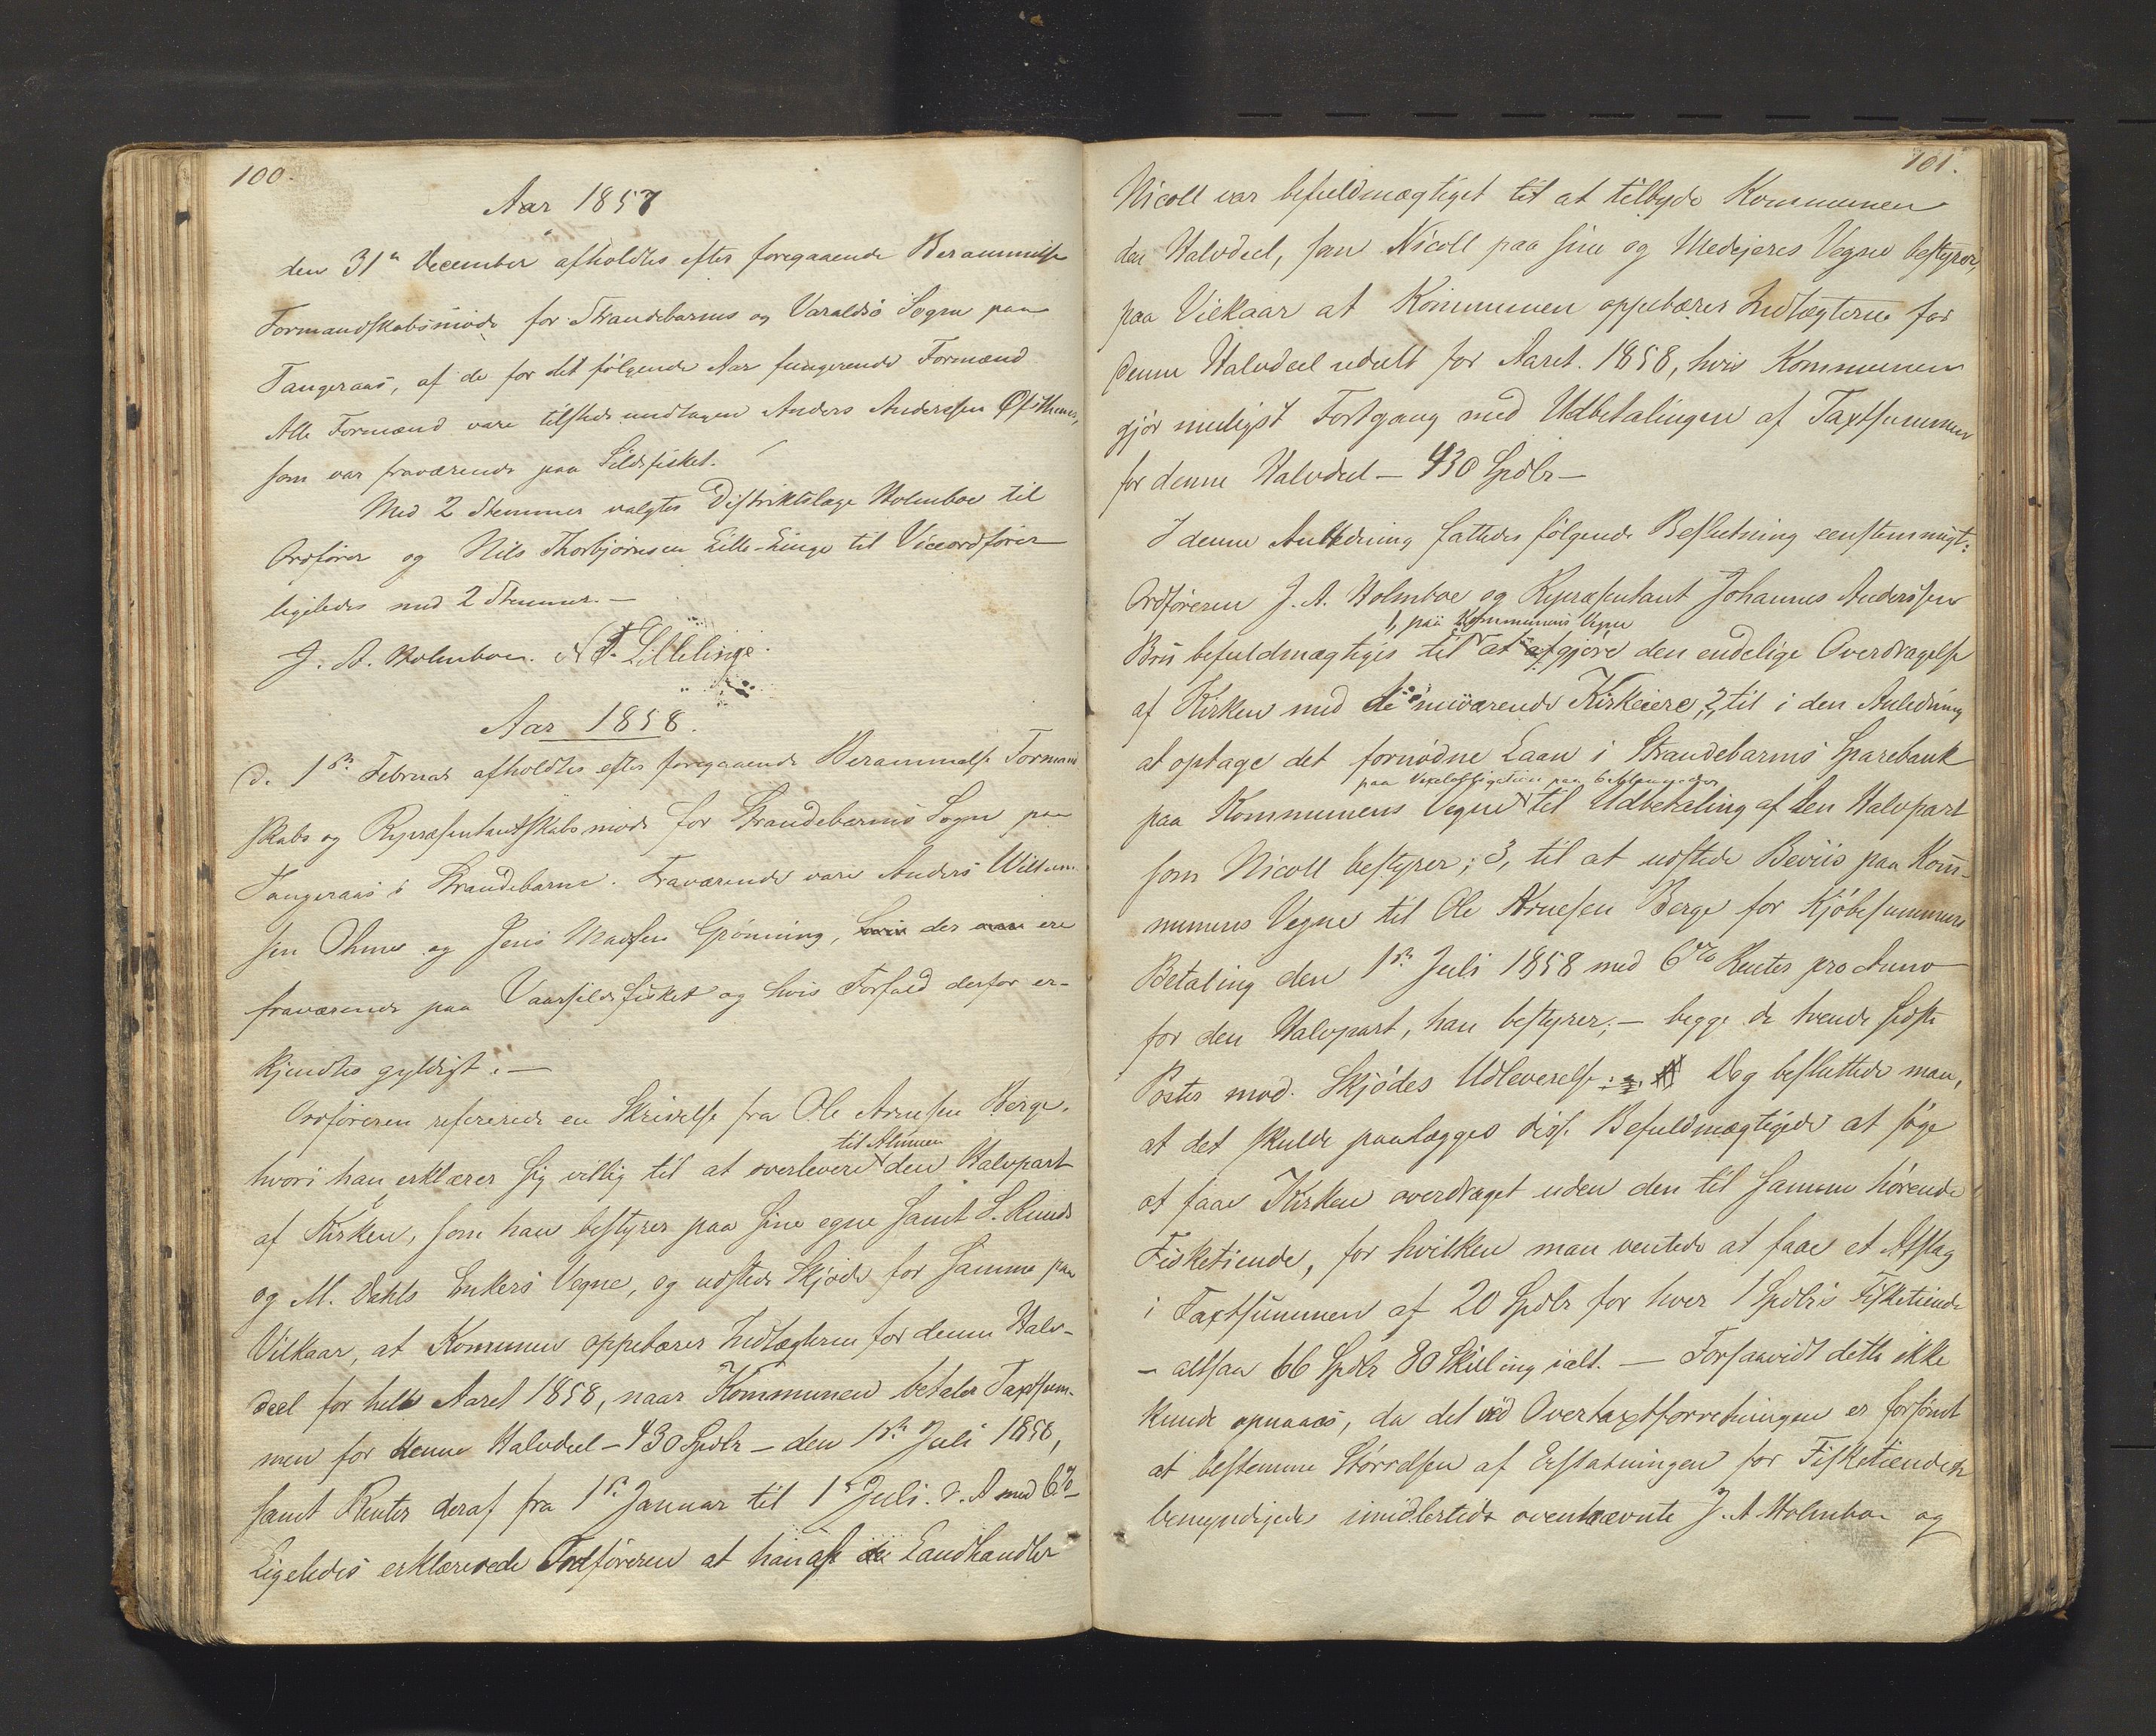 100.
Aar 1857
den 31te December afholdtes efter foregaaende Berammelse
Formandskabsmøde for Strandebarms og Varaldsø Sogne paa
Tangeraas, af de for det følgende Aar fungerende Formænd
Alle Formænd vare tilstede undtagen Anders Anderssen
som var fraværende paa Sildefisket.
Med 2 Stemmer valgtes Distriktslæge Holmboe til
Ordfører og Nils Thorbjørnsen Lille-Linge til Viceordfører
ligeledes med 2 Stemmer. —
J. A. Holmboe. N T. Lillelinge.
Aar 1858.
D. 1ste Februar afholdtes efter foregaaende Berammelse Formand
skabs og Repræsentantskabsmøde for Strandebarms Sogn paa
Tangeraas i Strandebarm. Fraværende vare Anders Willum
sen Ohme og Jens Madsen Grønning, der ere
fraværende paa Vaarsildefisket og hvis Forfald derfor er-
kjendtes gyldigt. —
Ordføreren refererede en Skrivelse fra Ole Arnesen Berge,
hvori han erklærer sig villig til at overlevere den Halvpart
til Almuen
af Kirken, som han bestyrer paa sine egne samt S. Runds
og M. Dahls Enkers Vegne, og udstede Skjøde for samme paa
Vilkaar, at Kommunen oppebærer Indtægterne for denne Halv-
deel for hele Aaret 1858, naar Kommunen betaler Taxtsum-
men for denne Halvdeel – 430 Spdlr – den 1ste Juli 1858,
samt Renter deraf fra 1ste Januar til 1ste Juli d. A med 6%
Ligeledes erklærede Ordføreren at han af Landhandler
101.
Nicoll var befuldmægtiget til at tilbyde Kommunen
den Halvdeel, som Nicoll paa sine og Medejeres Vegne bestyrer,
paa Vilkaar at Kommunen oppebærer Indtægterne for
denne Halvdeel udelt for Aaret 1858, hvis Kommunen
gjør muligst Fortgang med Udbetalingen af Taxtsummen
for denne Halvdeel – 430 Spdlr –
I denne Anledning fattedes følgende Beslutning eenstemmigt:
Ordføreren J. A. Holmboe og Repræsentant Johannes Anderssen
1, paa Kommunens Vegne
Brii befuldmægtiges til at afgjøre den endelige Overdragelse
af Kirken med de nuværende Kirkeiere, 2, til i den Anledning
at optage det fornødne Laan i Strandebarms Sparebank
paa Vexelobligation paa 6
paa Kommunens Vegne til Udbetaling af den Halvpart
som Nicoll bestyrer; 3, til at udstede Beviis paa Kom-
munens Vegne til Ole Arnesen Berge for Kjøbesummens
Betaling den 1ste Juli 1858 med 6% Renter pro Anno
for den Halvpart, han bestyrer; – begge de tvende sidste
Poster mod Skjødes Udleverelse. Dog besluttede man,
at det skulde paalægges disse Befuldmægtigede at søge
at faae Kirken overdraget uden den til samme hørende
Fisketiende, for hvilken man ventede at faae et Afslag
i Taxtsummen af 20 Spdlr for hver 1 Spdlrs Fisketiende
– altsaa 66 Spdlr 80 Skilling ialt. — Forsaavidt dette ikke
kunde opnaaes, da det ved Overtaxtforretningen er forsømt
at bestemme Størrelsen af Erstatningen for Fisketienden
bemyndigedes imidlertid ovennævnte J. A. Holmboe og